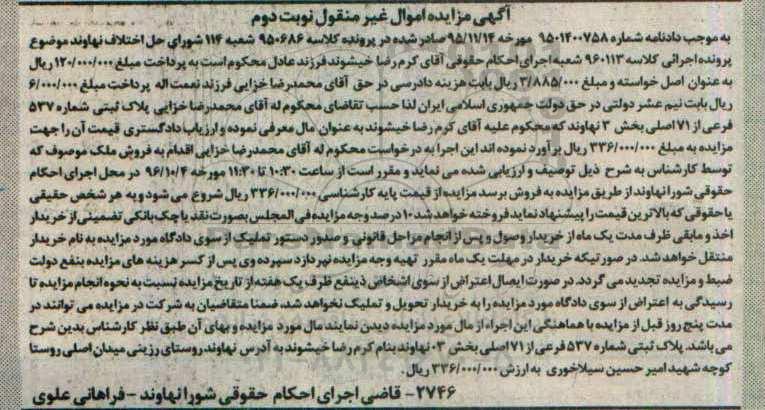 آگهی مزایده اموال غیر منقول نوبت دوم
به موجب دادنامه شماره ۹۵۰۱۴۰۰۷۵۸ مورخه ۹۵/۱۱/۱۴ صادر شده در پرونده کلاسه ۹۵۰۶۸۶ شعبه ۱۱۴ شورای حل اختلاف نهاوند موضوع
پرونده اجرائی کلاسه ۹۶۰۱۱۳ شعبه اجرای احکام حقوقی آقای کرم رضا خیشوند فرزند عادل محکوم است به پرداخت مبلغ ۱۲۰/۰۰۰/۰۰۰ ریال
به عنوان اصل خواسته و مبلغ ۳/۸۸۵/۰۰۰ ریال بابت هزینه دادرسی در حق آقای محمدرضا خزایی فرزند نعمت اله پرداخت مبلغ ۶/۰۰۰/۰۰۰
ریال بابت نیم عشر دولتی در حق دولت جمهوری اسلامی ایران لذا حسب تقاضای محکوم له آقای محمدرضا خزایی پلاک ثبتی شماره ۵۳۷
فرعی از ۷۱ اصلی بخش ۳ نهاوند که محکوم علیه آقای کرم رضا خیشوند به عنوان مال معرفی نموده و ارزیاب دادگستری قیمت آن را جهت
مزایده به مبلغ ۳۳۶/۰۰۰/۰۰۰ ریال برآورد نموده اند این اجرا به درخواست محکوم له آقای محمدرضا خزایی اقدام به فروش ملک موصوف که
توسط کارشناس به شرح ذیل توصیف و ارزیابی شده می نماید و مقرر است از ساعت ۱۰:۳۰ تا ۱۱:۳۰ مورخه ۹۶/۱۰/۴ در محل اجرای احکام
حقوقی شورا نهاوند از طریق مزایده به فروش برسد مزایده از قیمت پایه کارشناسی ۳۳۶/۰۰۰/۰۰۰ ریال شروع می شود و به هر شخص حقیقی
یا حقوقی که بالاترین قیمت را پیشنهاد نماید فروخته خواهد شد ۱۰ درصد وجه مزایده فی المجلس بصورت نقد یا چک بانکی تضمینی از خریدار
اخذ و مابقی ظرف مدت یک ماه از خریدار وصول و پس از انجام مراحل قانونی و صدور دستور تملیک از سوی دادگاه مورد مزایده به نام خریدار
منتقل خواهد شد. در صورتیکه خریدار در مهلت یک ماه مقرر تهیه وجه مزایده نپردازد سپرده وی پس از کسر هزینه های مزایده بنفع دولت
ضبط و مزایده تجدید می گردد. در صورت ایصال اعتراض از سوی اشخاص ذینفع ظرف یک هفته از تاریخ مزایده نسبت به نحوه انجام مزایده تا
رسیدگی به اعتراض از سوی دادگاه مورد مزایده را به خریدار تحویل و تملیک نخواهد شد، ضمنا متقاضیان به شرکت در مزایده می توانند در
مدت پنج روز قبل از مزایده با هماهنگی این اجراء از مال مورد مزایده دیدن نمایند مال مورد مزایده و بهای آن طبق نظر کارشناس بدین شرح
می باشد. پلاک ثبتی شماره ۵۳۷ فرعی از ۷۱ اصلی بخش ۰۳ نهاوند بنام کرم رضا خیشوند به آدرس نهاوند روستای رزینی میدان اصلی روستا
کوچه شهید امیر حسین سیلاخوری به ارزش ۳۳۶/۰۰۰/۰۰۰ ریال.
۲۷۴۶- قاضی اجرای احکام حقوقی شورا نهاوند - فراهانی علوی